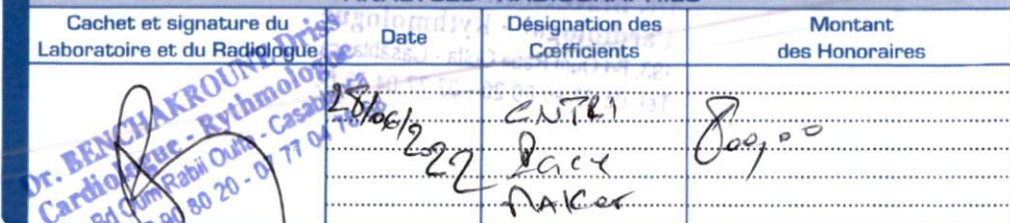 Cachet et signature du
Laboratoire et du Radiologue
Date
Désignation des
Cœfficients
Montant
des Honoraires
Dr. BENCHAKROUNE Driss
Cardiologue - Rythmologue
Bd Oum Rabii Oulfa - Casablanca
90 80 20 - 07 77 04 76
28/06/2022
CNTRL
Pace
MAKer
800,00